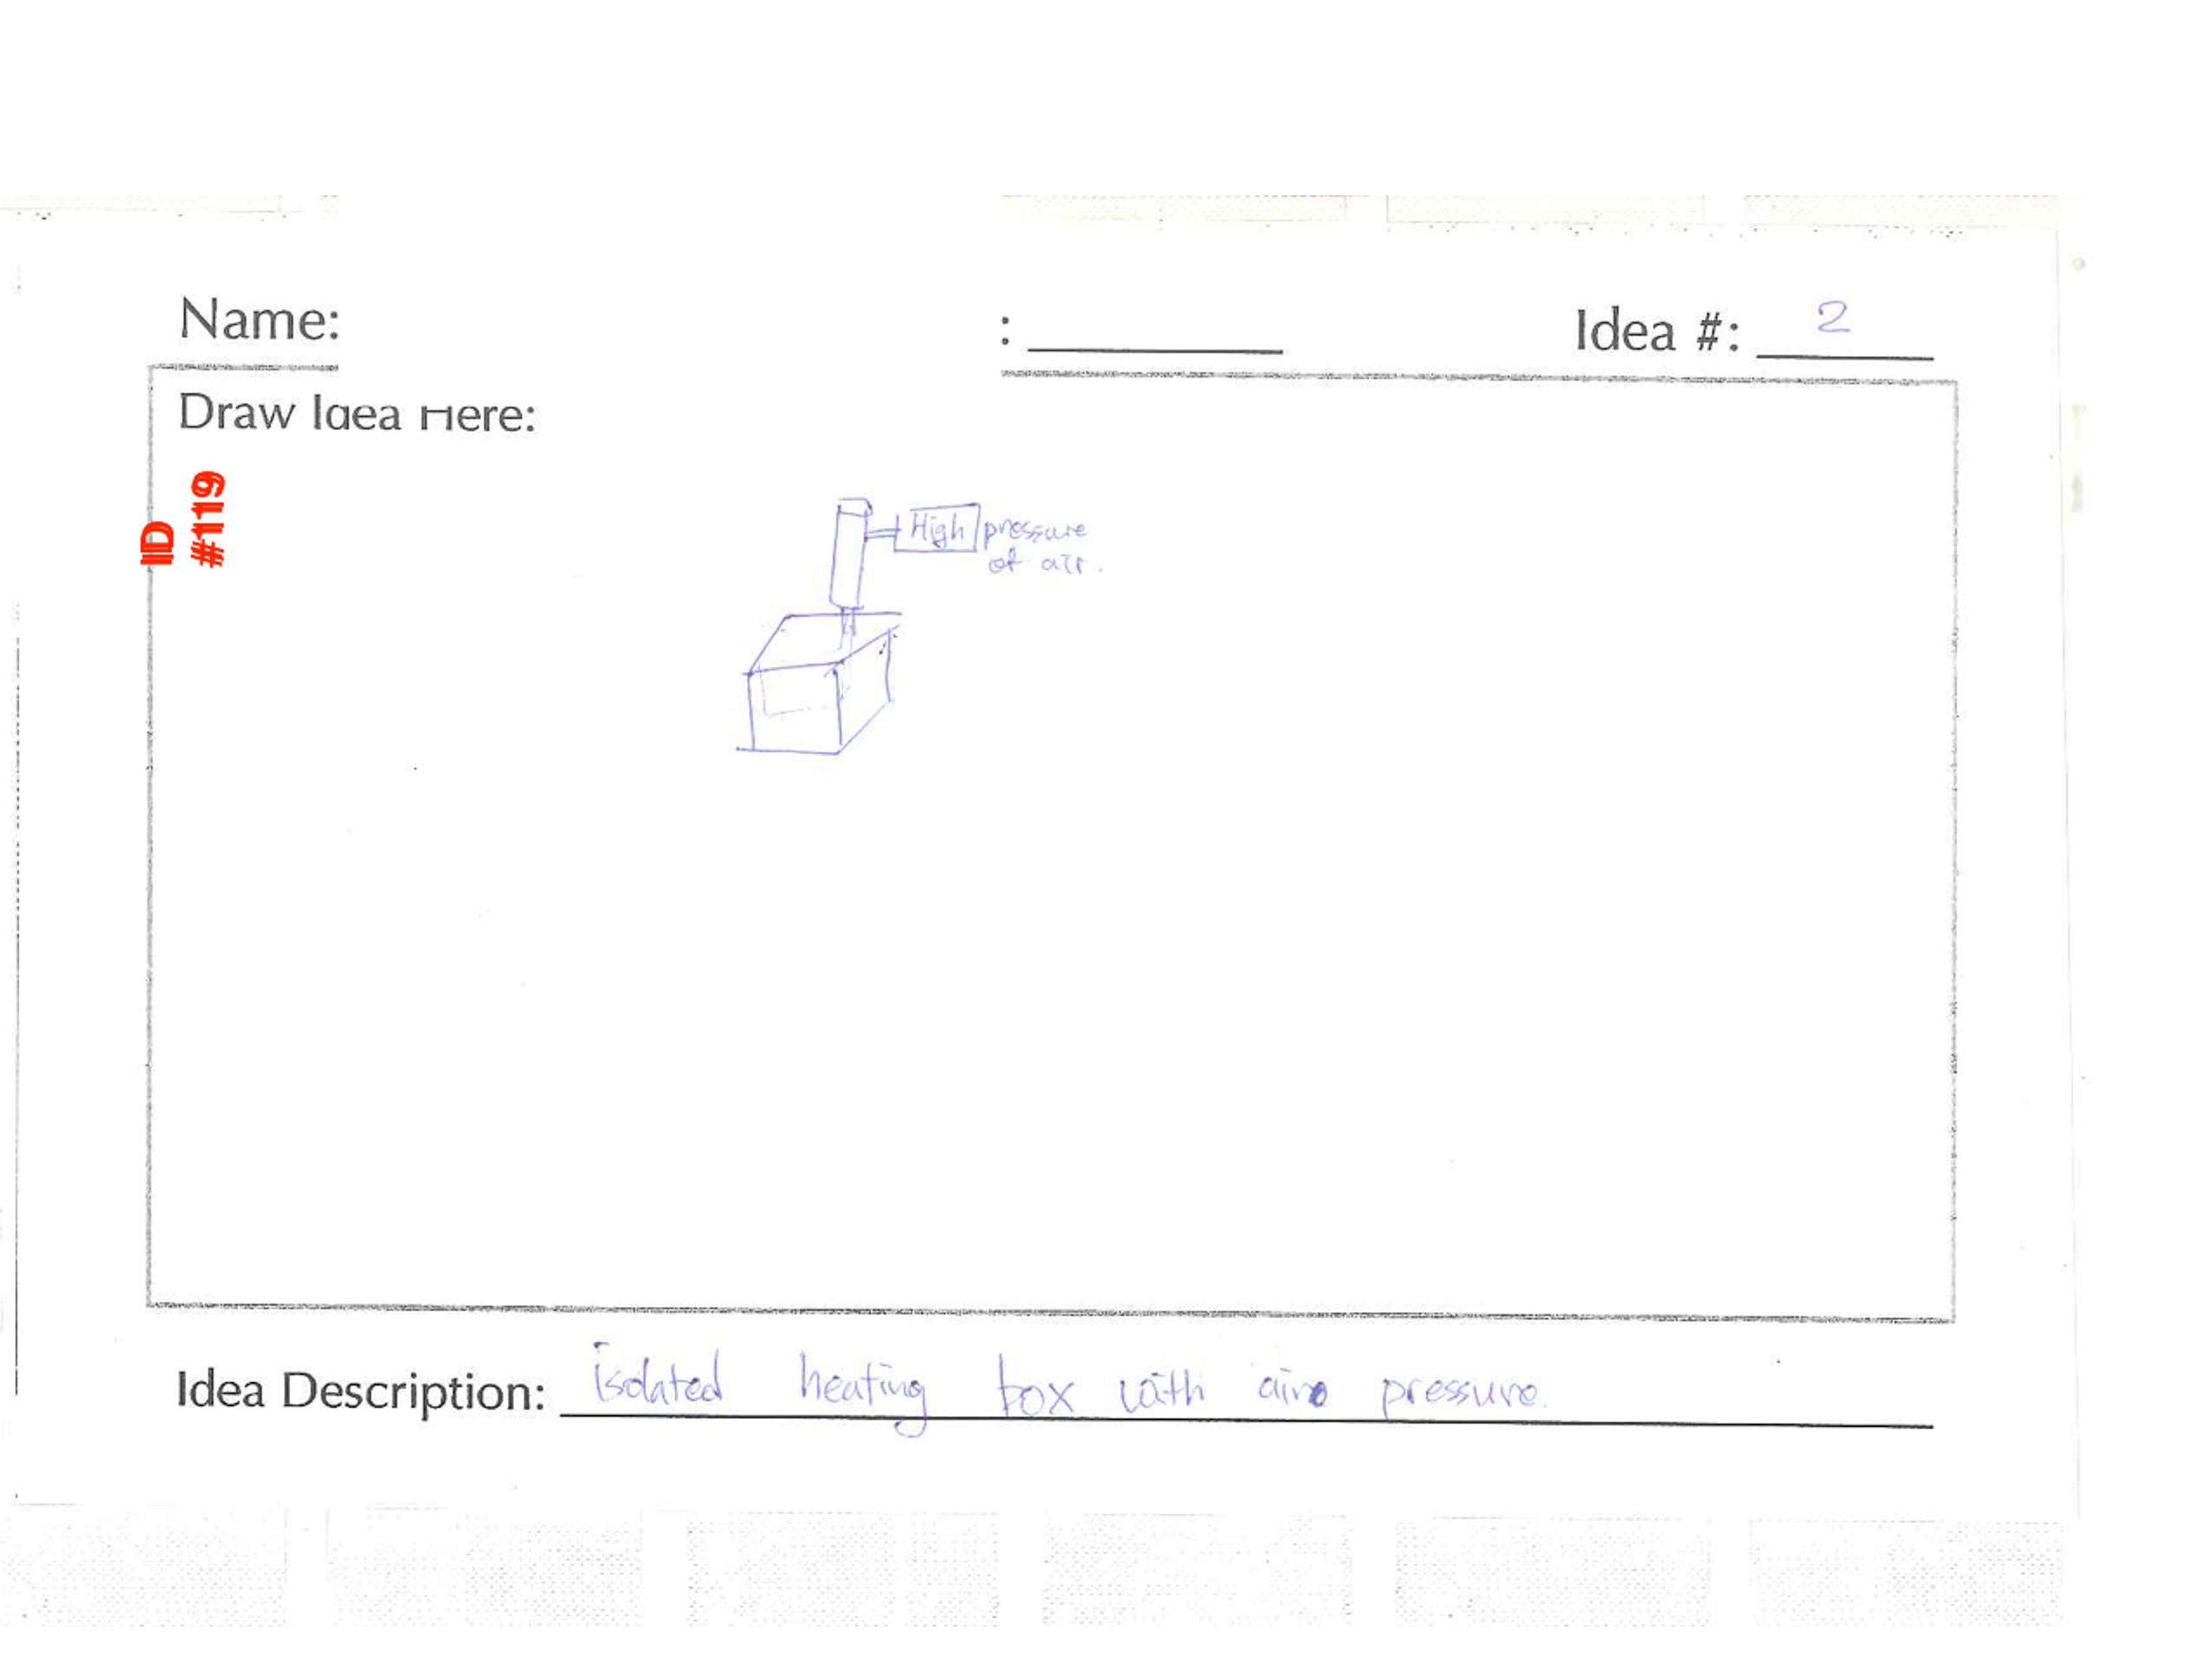 Name:
: Idea #: 2
Draw Idea Here:
ID
#119
High pressure
of air.
Idea Description: isolated heating box with air pressure.